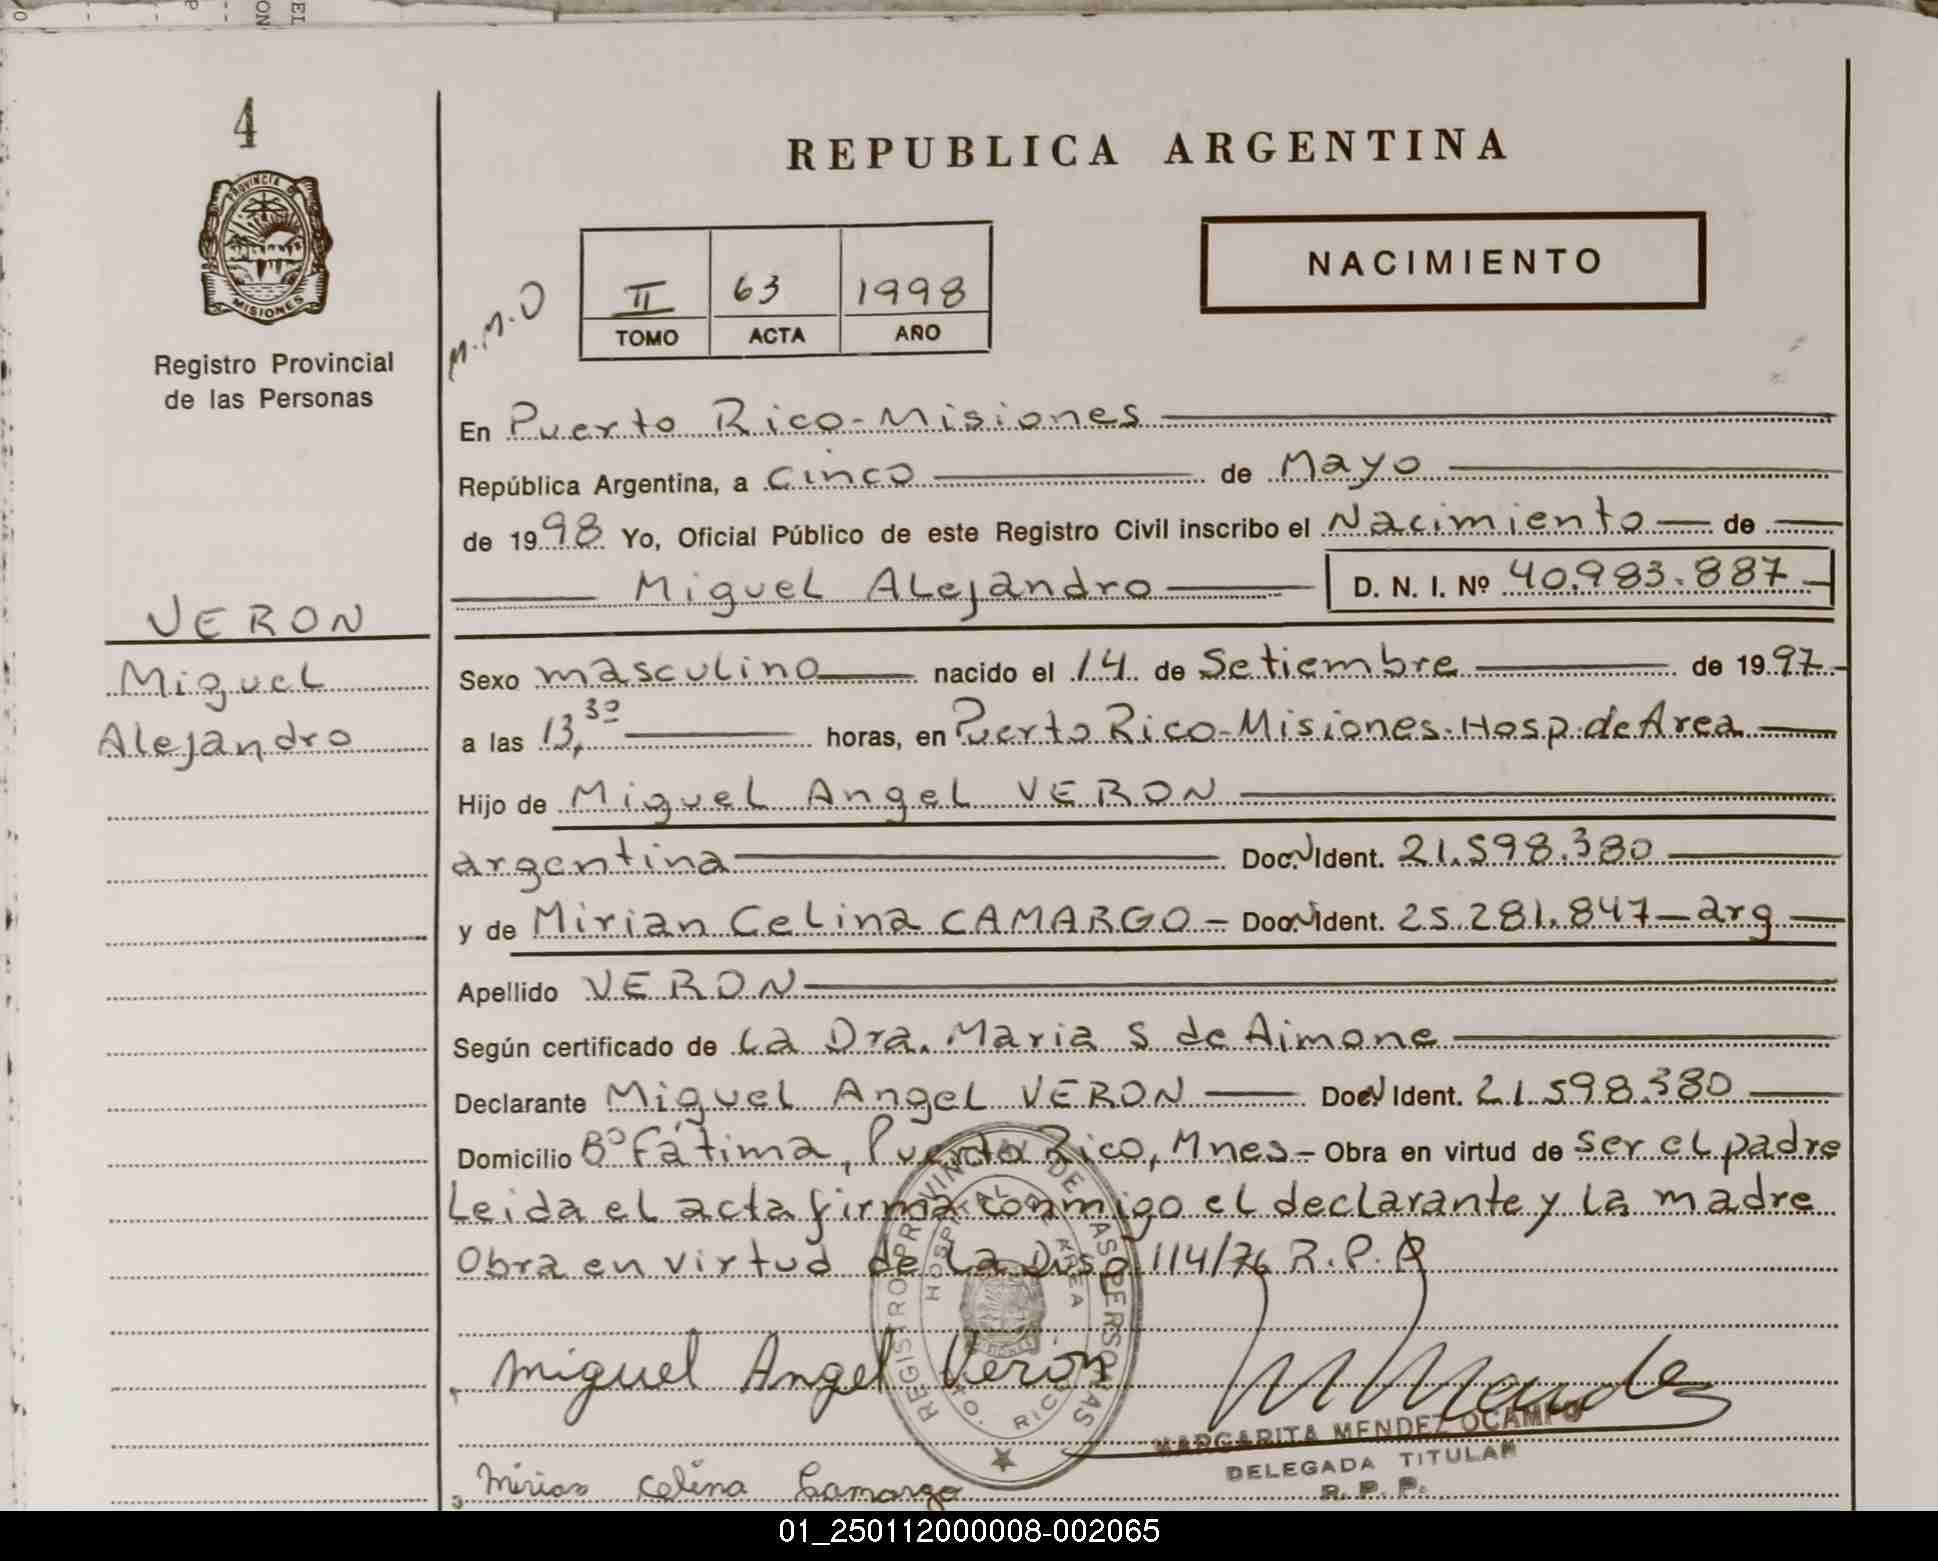 4
REPUBLICA ARGENTINA
PROVINCIA DE
MISIONES
Registro Provincial
de las Personas
M.M.O
II 63 1998
TOMO ACTA AÑO
NACIMIENTO
En Puerto Rico-Misiones
República Argentina, a cinco de Mayo
de 1998 Yo, Oficial Público de este Registro Civil inscribo el Nacimiento de
Miguel Alejandro D. N. I. Nº 40.983.887
VERON
Miguel
Alejandro
Sexo masculino nacido el 14 de Setiembre de 1997
a las 13,30 horas, en Puerto Rico-Misiones-Hosp.de Area
Hijo de Miguel Angel VERON
argentina Doc. Ident. 21.598.380
y de Mirian Celina CAMARGO - Doc. Ident. 25.281.847 - arg
Apellido VERON
Según certificado de la Dra. Maria S de Aimone
Declarante Miguel Angel VERON Doc. Ident. 21.598.380
Domicilio Bº Fátima, Puerto Rico, Mnes - Obra en virtud de ser el padre
Leida el acta firma conmigo el declarante y la madre
Obra en virtud de la Disp. 114/76 R.P.P
REGISTRO PROVINCIAL DE LAS PERSONAS
HOSPITAL DE AREA
PTO. RICO
Miguel Angel Verón
MARGARITA MENDEZ OCAMPO
DELEGADA TITULAR
R. P. P.
Mirian Celina Camargo
01_250112000008-002065